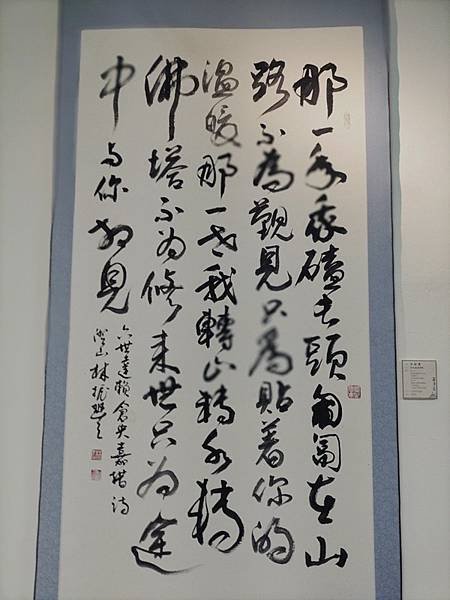 那一年我磕長頭匍匐在山
路不為覲見只為貼著你的
溫暖那一世我轉山轉水轉
佛塔不為修來世只為途
中與你相見
六世達賴倉央嘉措詩